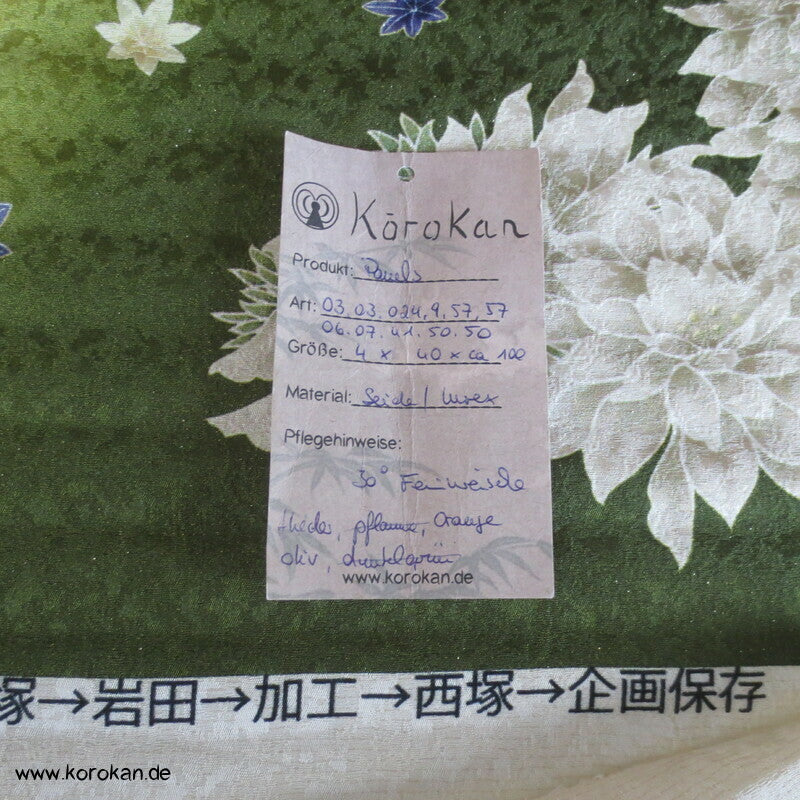 Kōrokan
Produkt: Panels
Art: 03.03.024,9,57,57
06.07.41.50.50
Größe: 4 x 40 x ca 100
Material: Seide/ Lurex
Pflegehinweise:
30° Feinwäsche
flieder, pflaume, Orange
oliv, dunkelgrün
www.korokan.de
塚→岩田→加工→西塚→企画保存
www.korokan.de